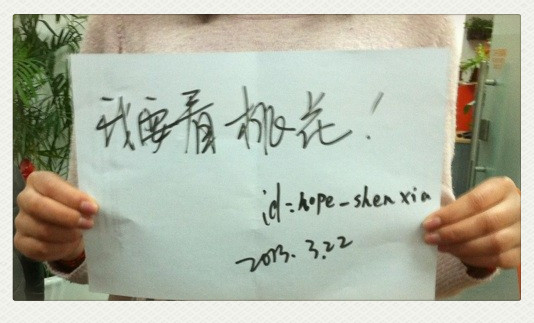 我要看桃花!
id=hope-shenxin
2013.3.22